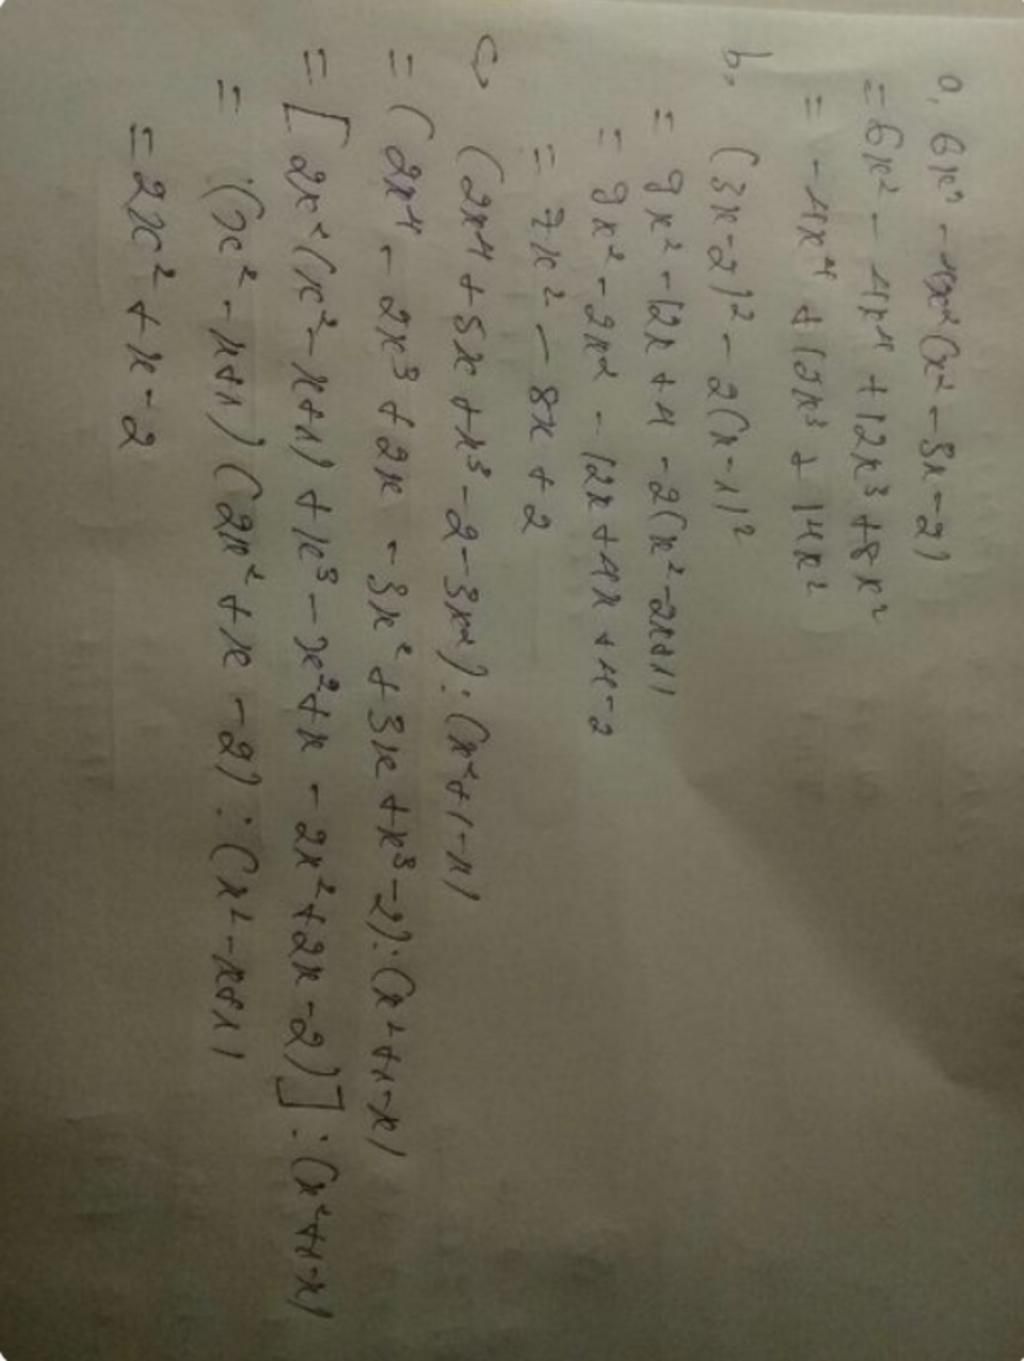 a, 6x² - 4x²(x² - 3x - 2)
= 6x² - 4x⁴ + 12x³ + 8x²
= - 4x⁴ + 12x³ + 14x²
b, (3x-2)² - 2(x-1)²
= 9x² - 12x + 4 - 2(x² - 2x+1)
= 9x² - 2x² - 12x + 4x + 4 - 2
= 7x² - 8x + 2
c) (2x⁴ + 5x + x³ - 2 - 3x²) : (x² + 1 - x)
= (2x⁴ - 2x³ + 2x - 3x² + 3x + x³ - 2) : (x² + 1 - x)
= [2x²(x² - x+1) + x³ - x² + x - 2x² + 2x - 2)] : (x² + 1 - x)
= (x² - x+1) (2x² + x - 2) : (x² - x+1)
= 2x² + x - 2